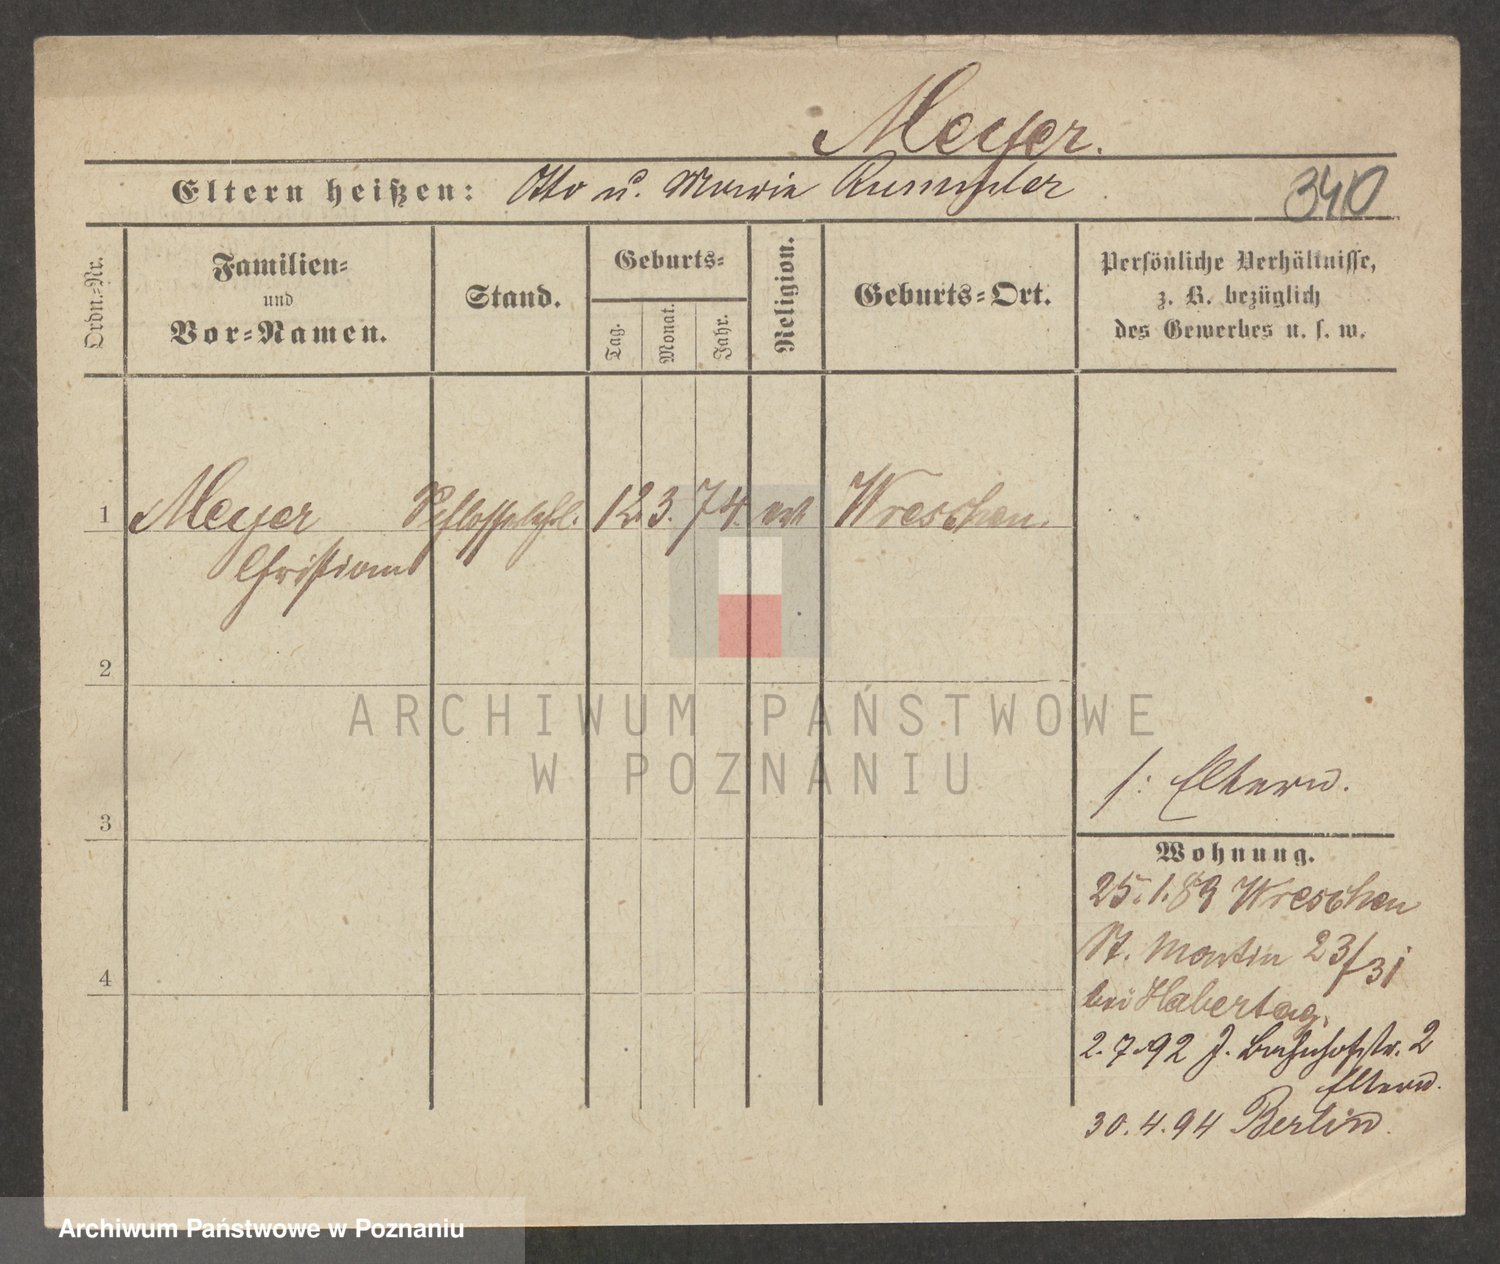 Meyer.
Eltern heißen: Otto u. Marie Rummler
340
Ordn.-Nr.
Familien-
und
Vor-Namen.
Stand.
Geburts-
Tag.
Monat.
Jahr.
Religion.
Geburts-Ort.
Persönliche Verhältnisse,
z. B. bezüglich
des Gewerbes u. s. w.
1 Meyer 12. 3. 74. ev Wreschen.
Christian
2
ARCHIWUM PAŃSTWOWE
W POZNANIU
s: Eltern.
3
Wohnung.
25.1.89 Wreschen
St. Martin 23/31
bei Habertag,
4
2.7.92 J. Bahnhofstr. 2
Eltern.
30.4.94 Berlin.
Archiwum Państwowe w Poznaniu